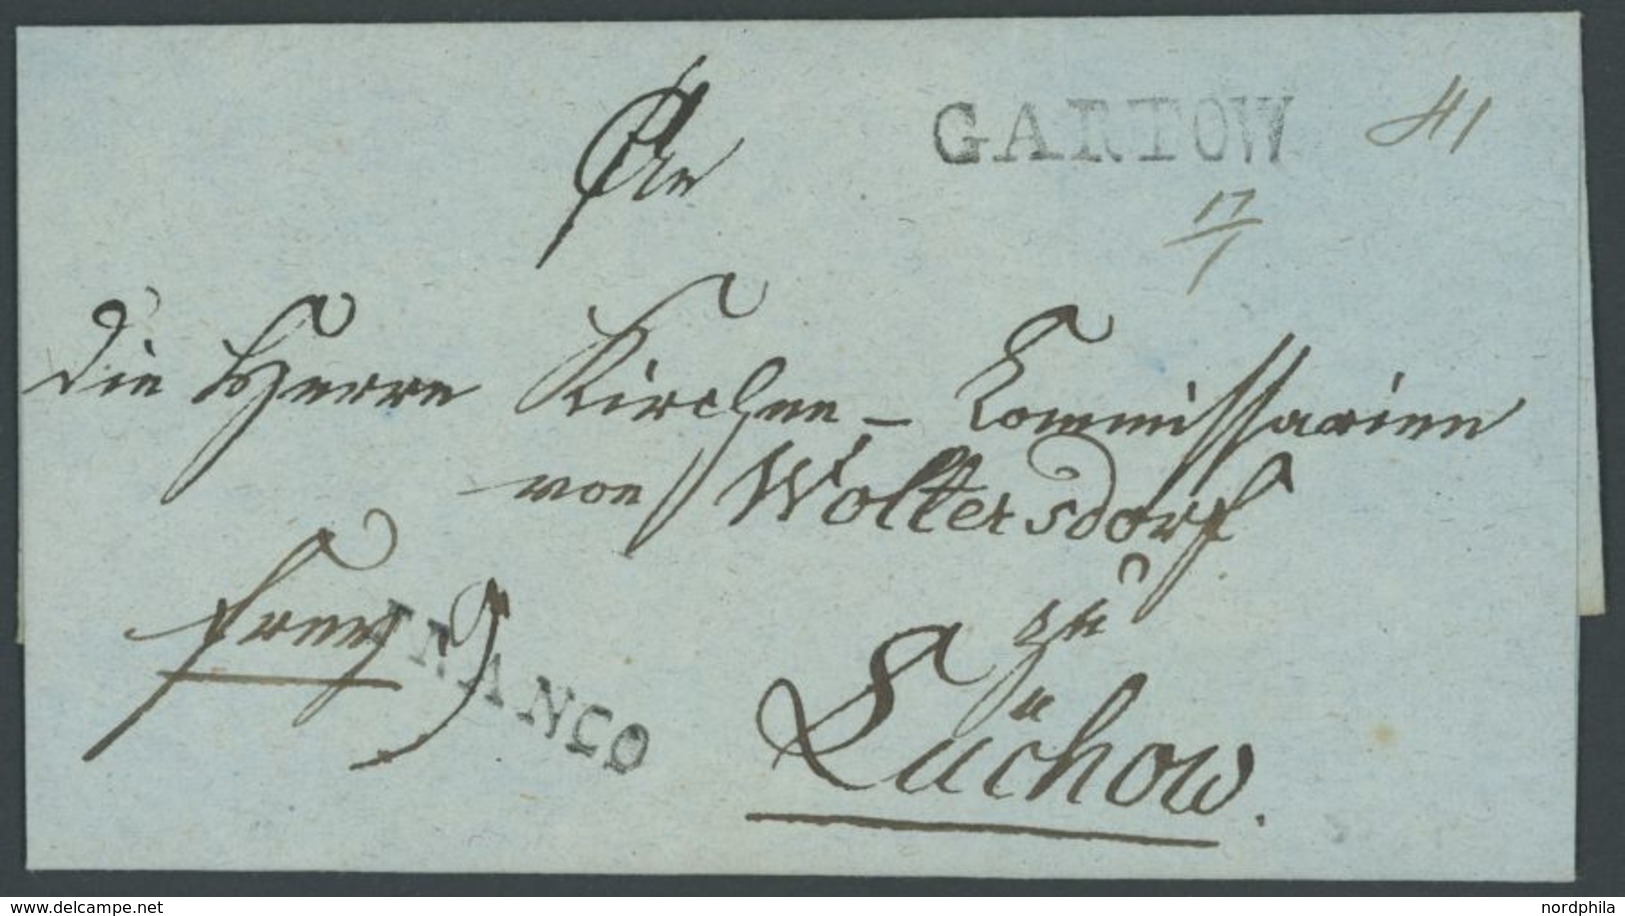 GARTOW
41
17/1
An
die Herren Kirchen-Commissarien
von Woltersdorf
frey
FRANCO
zu
Lüchow.
www.delcampe.net
nordphila